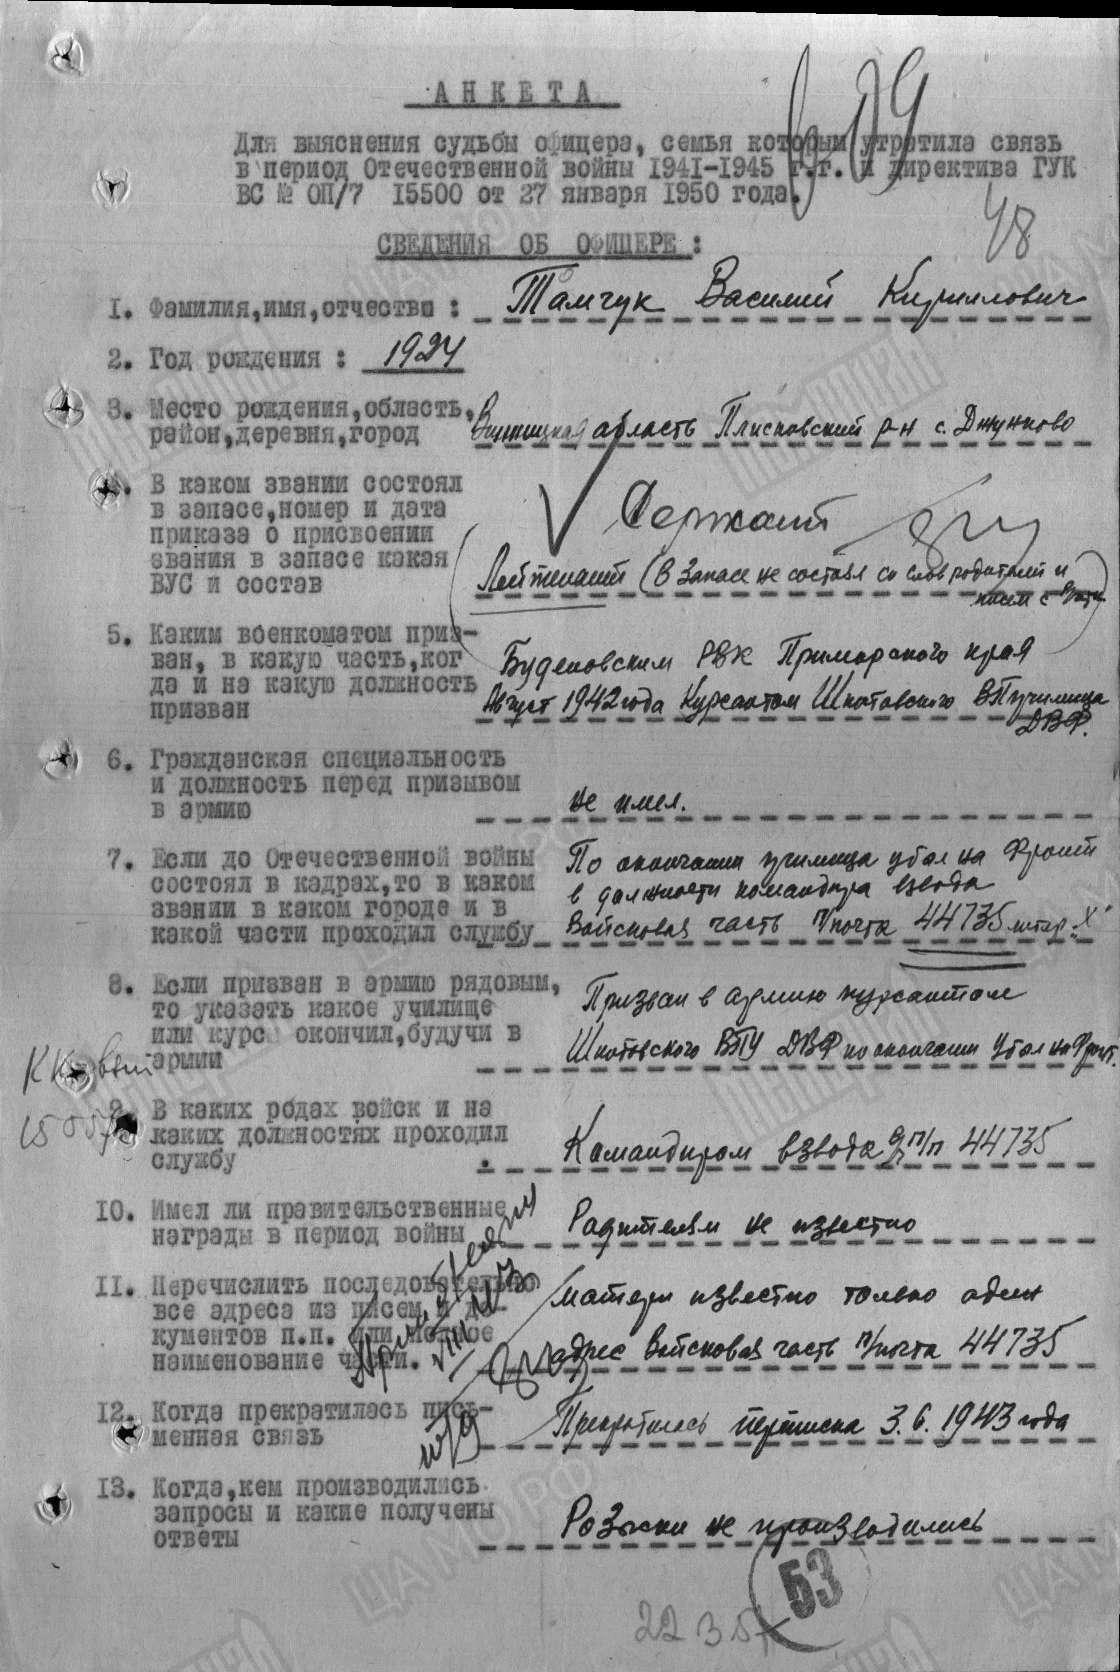 АНКЕТА
Для выяснения судьбы офицера, семья которым утратила связь
в период Отечественной войны 1941-1945 г.г. и директива ГУК
ВС № ОП/7 15500 от 27 января 1950 года.
48
СВЕДЕНИЯ ОБ ОФИЦЕРЕ:
1. Фамилия,имя,отчество : Тамчук Василий Кириллович
2. Год рождения : 1924
3. Место рождения,область, Винницкая область Плисковский р-н с. Джунково
район,деревня,город
4. В каком звании состоял
в запасе,номер и дата Сержант
приказа о присвоении
звания в запасе какая
ВУС и состав Лейтенант (В Запасе не состоял со слов родителей и
писем с
5. Каким военкоматом приз-
ван, в какую часть,ког Буденовским РВК Приморского края
да и на какую должность Август 1942 года Курсантом Шкотовского ВПучилища
призван ДВФ.
6. Гражданская специальность
и должность перед призывом
в армию не имел.
7. Если до Отечественной войны По окончании училища убыл на Фронт
состоял в кадрах,то в каком в должности командира взвода
звании в каком городе и в
какой части проходил службу Войсковая часть п/почта 44735 литер "Х"
8. Если призван в армию рядовым,
то указать какое училище Призван в армию курсантом
или курс окончил,будучи в
армии Шкотовского ВПУ ДВФ по окончании Убыл на Фронт.
9. В каких родах войск и на
каких должностях проходил
службу Командиром взвода п/п 44735
10. Имел ли правительственные
награды в период войны Родителям не известно
11. Перечислить последовательно
все адреса из писем и до- матери известно только один
кументов п.п. или полное
наименование части. адрес Войсковая часть п/почта 44735
12. Когда прекратилась пись-
менная связь Прекратилась переписка 3.6.1943 года
13. Когда,кем производились
запросы и какие получены
ответы Розыски не производились
53
22 3 5
ЦАМО РФ